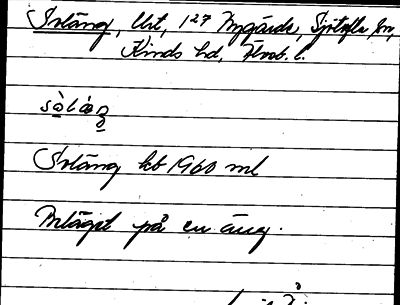 Soläng, Urt, 127 Nygärde, Sjötofta sn,
Kinds hd, Älvsb. l.
sòlàŋ
Soläng kb 1960 ml
Beläget på en äng.